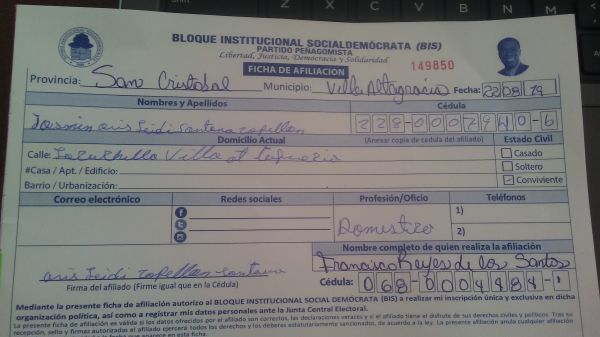 BLOQUE INSTITUCIONAL SOCIALDEMÓCRATA (BIS)
PARTIDO PEÑAGOMISTA
Libertad, Justicia, Democracia y Solidaridad
FICHA DE AFILIACION 149850
Provincia: San Cristobal Municipio: Villa Altagracia Fecha: 22 08 19
Nombres y Apellidos Cédula
228-0007940-6
Domicilio Actual (Anexar copia de cédula del afiliado) Estado Civil
Calle: Villa Casado
#Casa / Apt. / Edificio: Soltero
Barrio / Urbanización: Conviviente
Correo electrónico Redes sociales Profesión/Oficio Teléfonos
1)
Domestico
2)
Nombre completo de quien realiza la afiliación
Francisco Reyes de los Santos
Firma del afiliado (Firme igual que en la Cédula) Cédula: 068-0004484-1
Mediante la presente ficha de afiliación autorizo al BLOQUE INSTITUCIONAL SOCIAL DEMÓCRATA (BIS) a realizar mi inscripción única y exclusiva en dicha
organización política, así como a registrar mis datos personales ante la Junta Central Electoral.
La presente ficha de afiliación es válida si los datos ofrecidos por el afiliado son correctos, las declaraciones veraces y si el afiliado tiene el disfrute de sus derechos civiles y políticos. Tras su
recepción, sello y firmas autorizadas el afiliado ejercerá todos los derechos y los deberes estatutariamente sancionados, de acuerdo a la ley. La presente afiliación anula cualquier afiliación